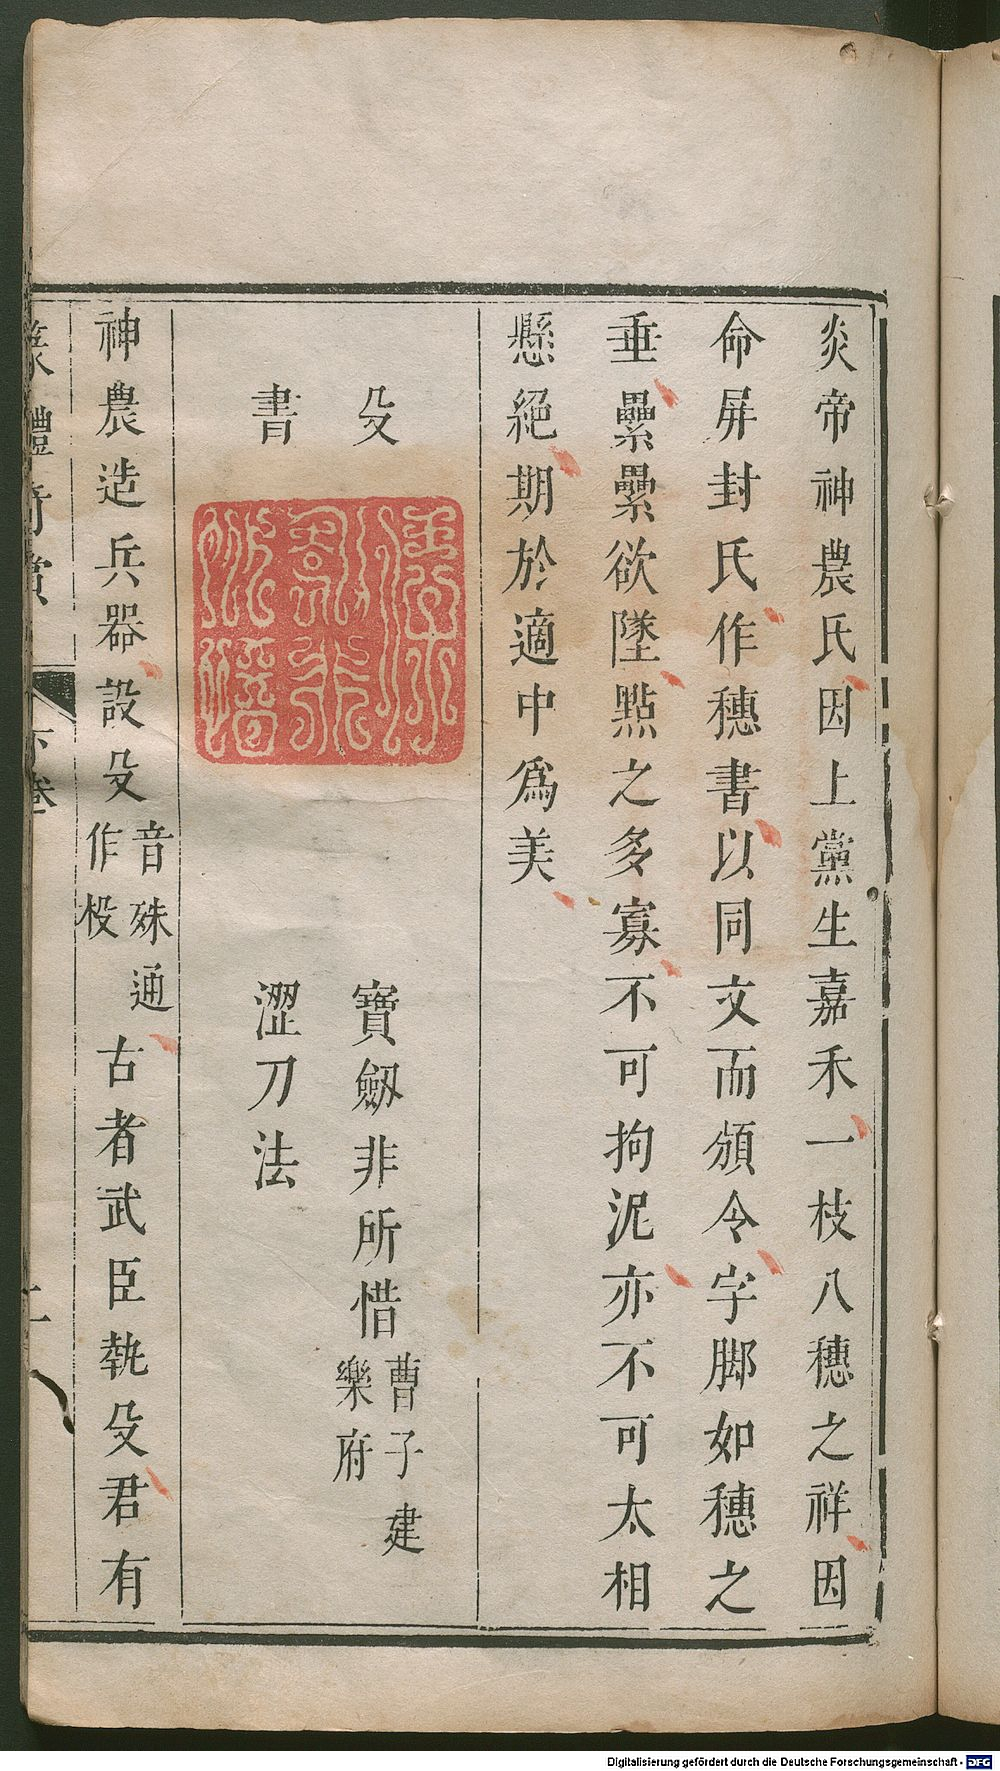 炎帝神農氏因上黨生嘉禾一枝八穗之祥因
命屏封氏作穗書以同文而頒令字脚如穗之
垂纍纍欲墜點之多寡不可拘泥亦不可太相
懸絕期於適中爲美
殳
書
寶劔非所惜曹子建樂府
澀刀法
神農造兵器設殳音殊通作杸古者武臣執殳君有
下卷
Digitalisierung gefördert durch die Deutsche Forschungsgemeinschaft - DFG